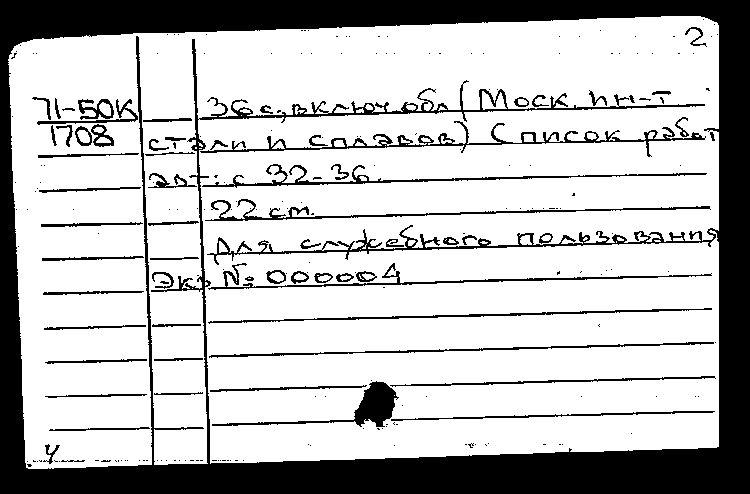 2
71-50К 36 с, включ. обл (Моск. ин-т
1708 стали и сплавов) Список работ
авт: с 32-36.
22 см.
Для служебного пользования
Экз № 000004
4